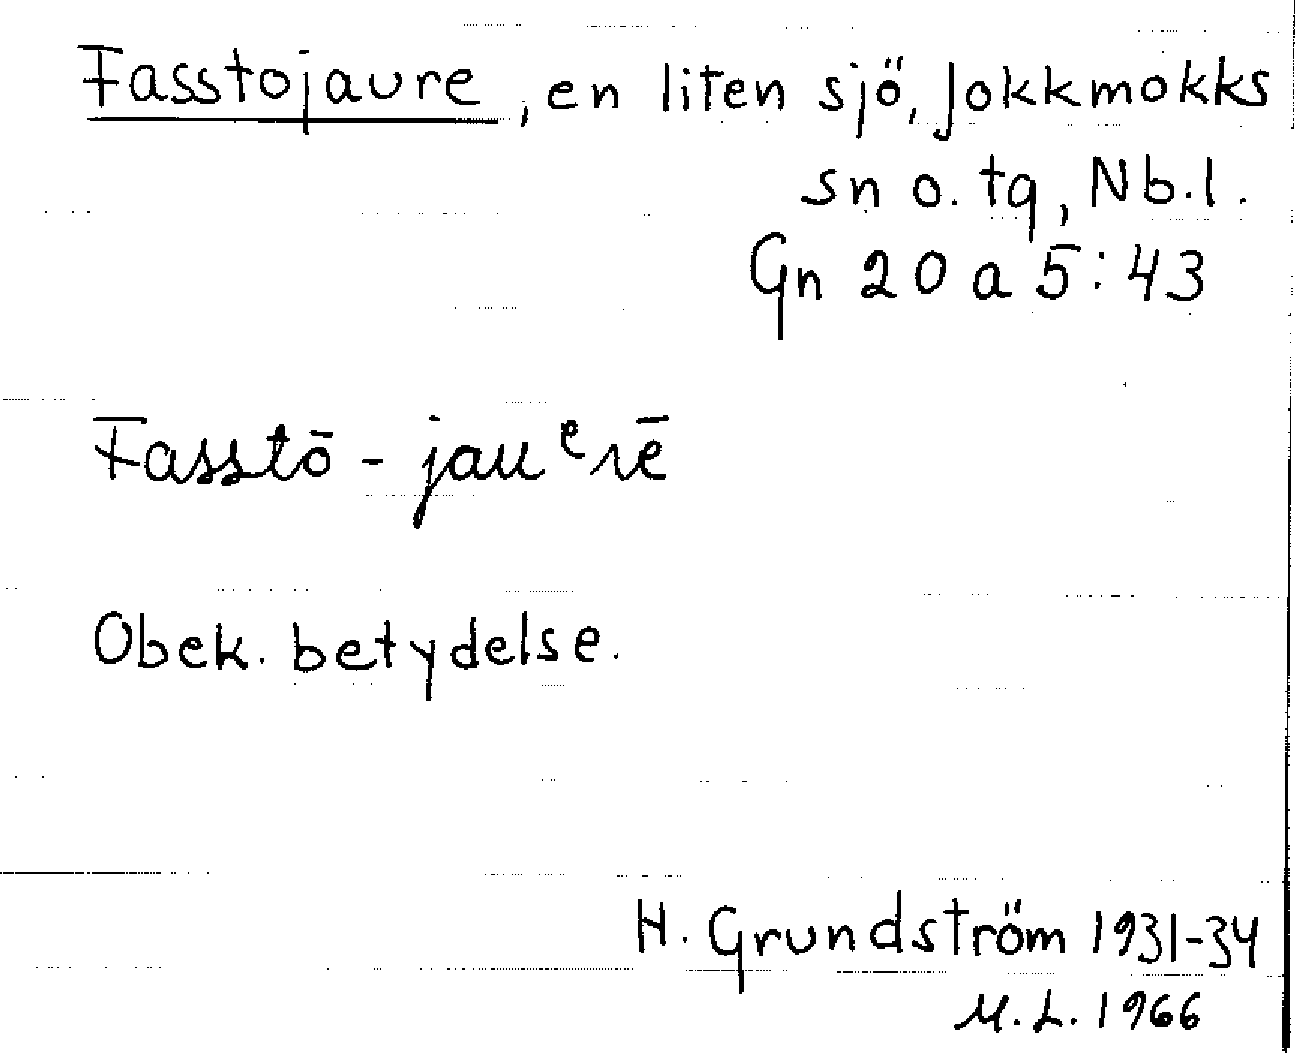 Fasstojaure, en liten sjö, Jokkmokks
sn o. tg, Nb.l.
Gn 20 a 5:43
Fasstō - jauᵉrē
Obek. betydelse.
H. Grundström 1931-34
M.L. 1966